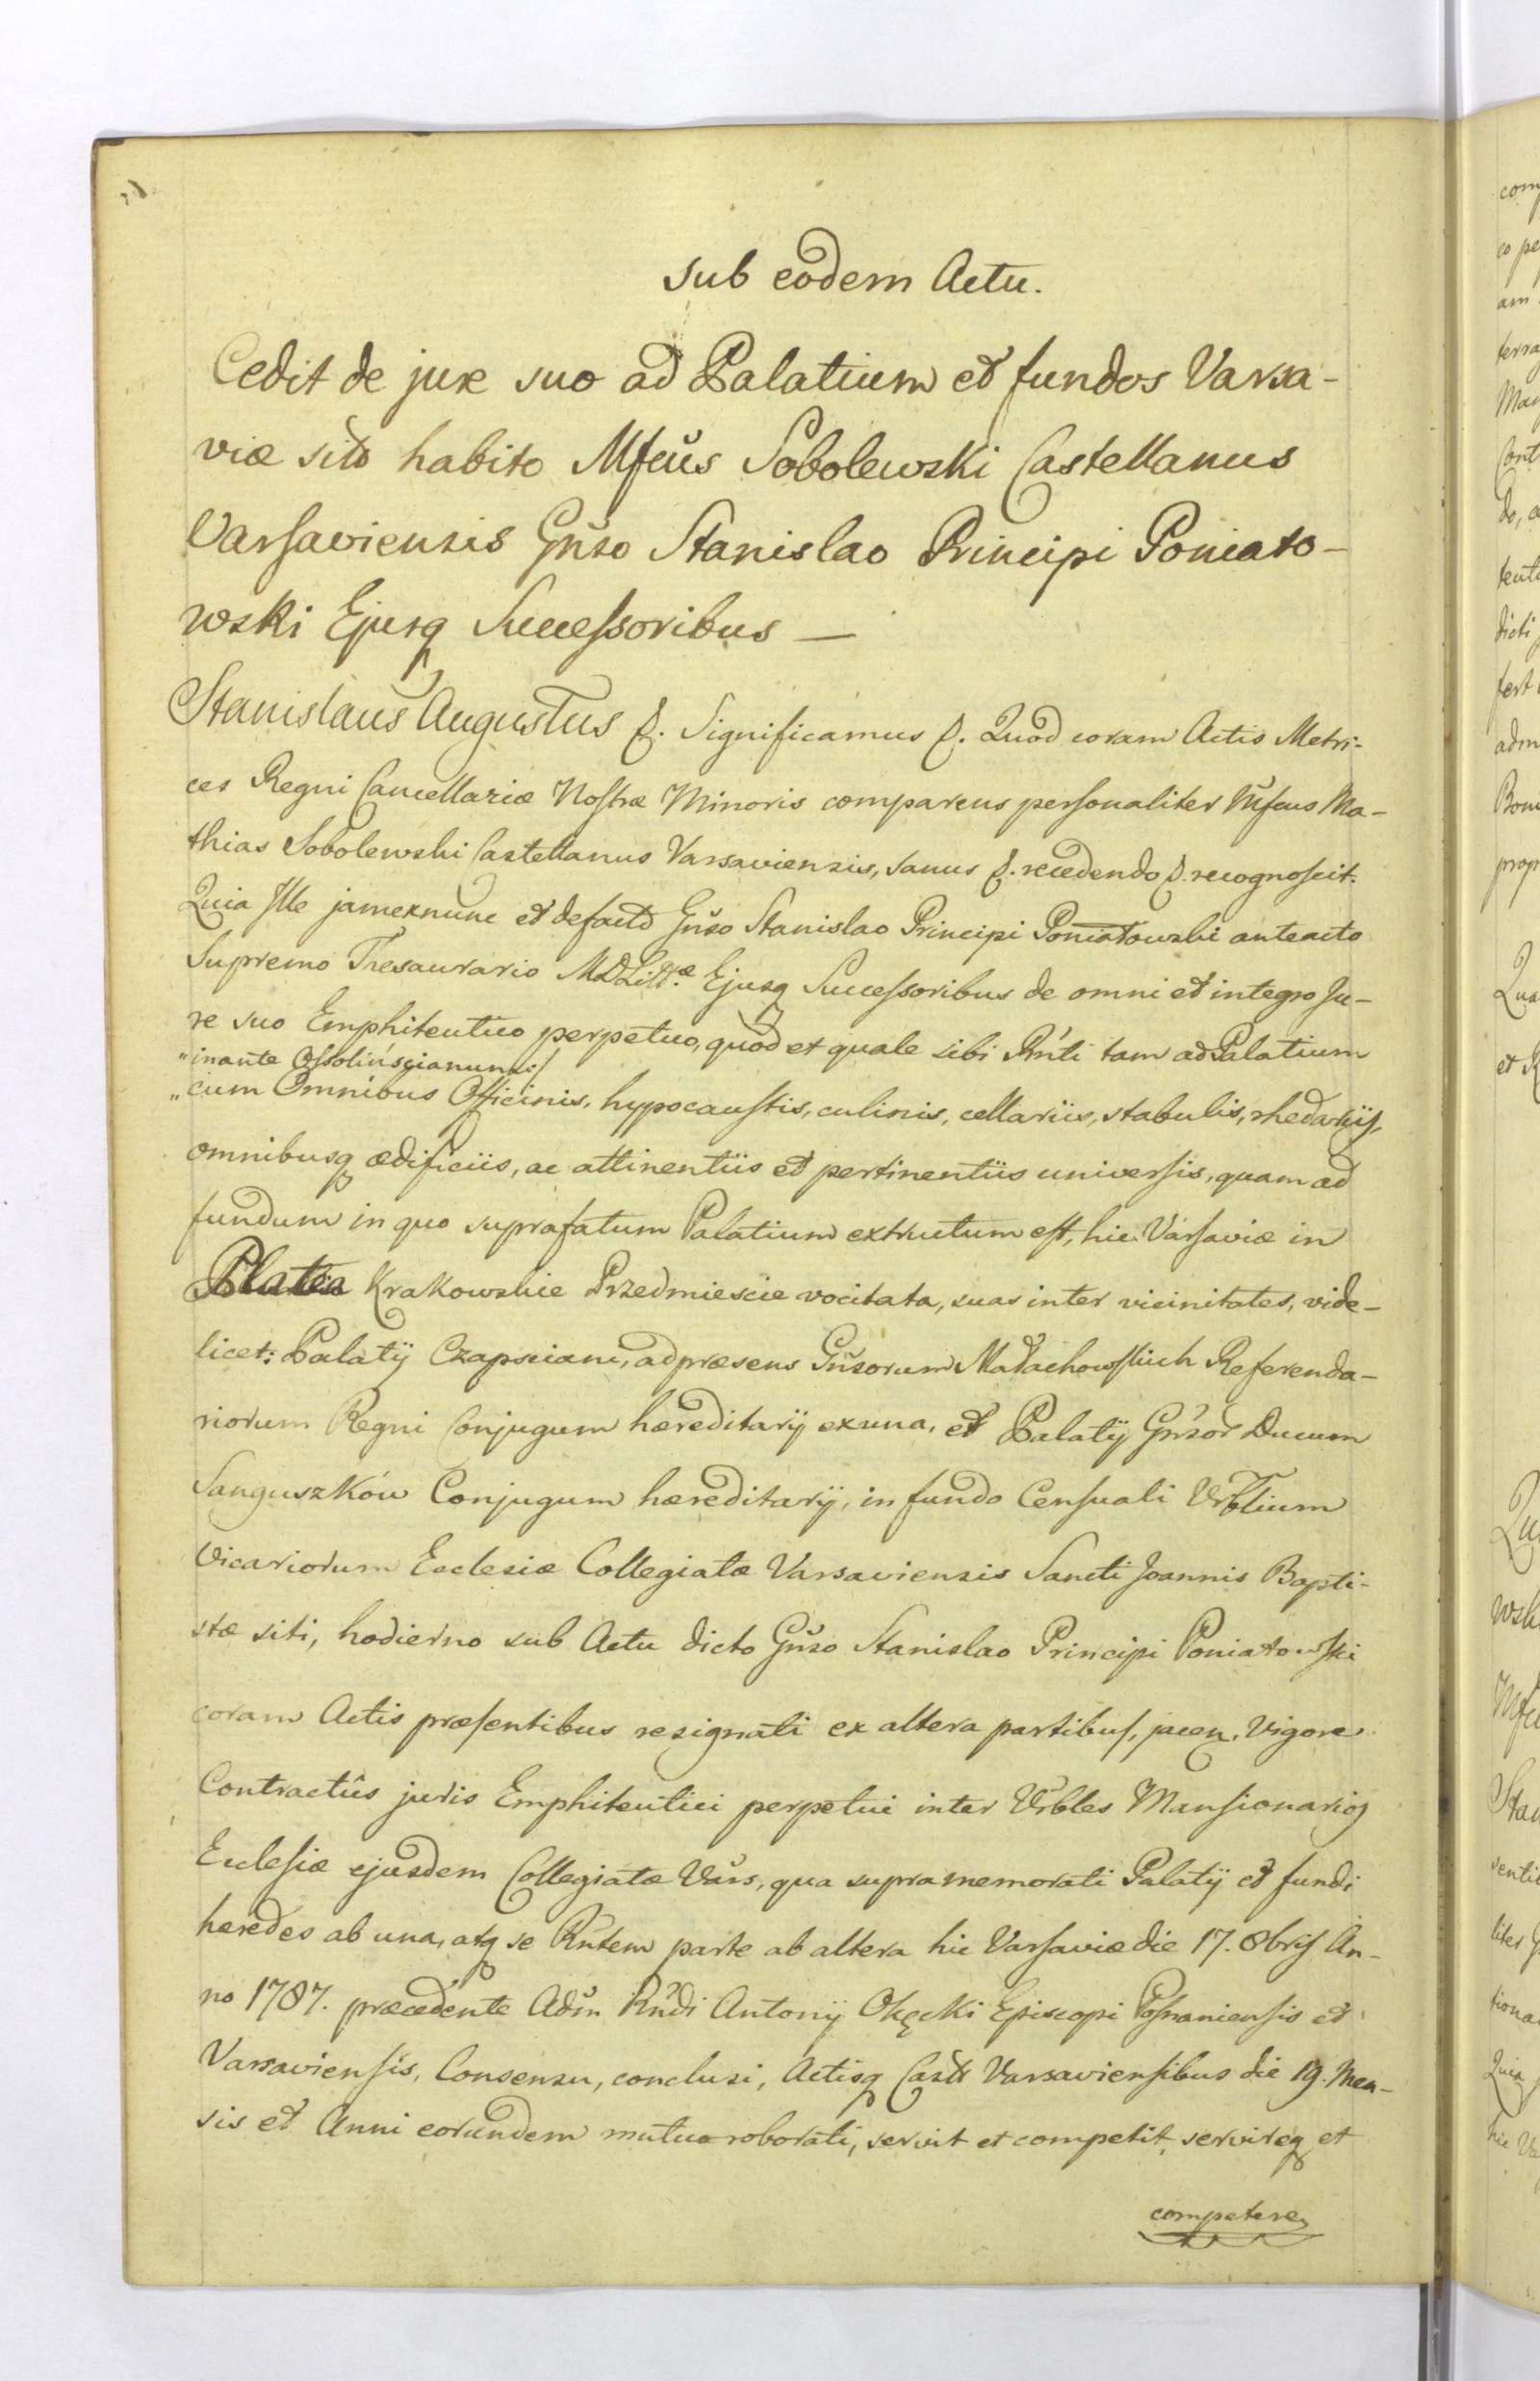 Sub eodem Actu.
Cedit de jure suo ad Palatium et fundos Varsa-
viæ sito habito Mfcus Sobolewski Castellanus
Varsaviensis Gnso Stanislao Principi Poniato-
wski Ejusq Successoribus —
Stanislaus Augustus &. Significamus &. Quod coram Actis Metri-
ces Regni Cancellariæ Nostræ Minoris comparens personaliter Mfcus Ma-
thias Sobolewski Castellanus Varsaviensis, sanus &. recedendo &. recognoscit.
Quia Ille jamexnunc et defacto Gnso Stanislao Principi Poniatowski anteacto
Supremo Thesaurario MDLittæ Ejusq Successoribus de omni et integro Ju-
re suo Emphiteutico perpetuo, quod et quale sibi Rnti tam ad Palatium
"inante Ossolińscianum:/
"cum Omnibus Officinis, hypocaustis, culinis, cellariis, stabulis, rhedariis,
omnibusq ædificiis, ac attinentiis et pertinentiis universis, quam ad
fundum in quo suprafatum Palatium extructum est, hic Varsaviæ in
Platea Krakowskie Przedmiescie vocitata, suas inter vicinitates, vide-
licet: Palatij Czapsciani, ad præsens Gnsorum Małachowskich Referenda-
riorum Regni Conjugum hæreditarij ex una, et Palatij Gnsor Ducum
Sanguszków Conjugum hæreditarij, in fundo Censuali Vrblium
Vicariorum Ecclesiæ Collegiatæ Varsaviensis Sancti Joannis Bapti-
stæ siti, hodierno sub Actu dicto Gnso Stanislao Principi Poniatowski
coram Actis præsentibus resignati ex altera partibus, jacen, Vigore
Contractûs juris Emphiteutici perpetui inter Vrbles Mansionarios
Ecclesiæ ejusdem Collegiatæ Vars, qua supramemorati Palatij et fundi
hæredes ab una, atq se Rntem parte ab altera hic Varsaviæ die 17. 8bris An-
no 1787. præcedente Adm Rndi Antonij Okęcki Episcopi Posnaniensis et
Varsaviensis, Consensu, conclusi, Actisq Castr Varsaviensibus die 19. Men-
sis et Anni eorundem mutuo roborati, servit et competit, servireq et
competere